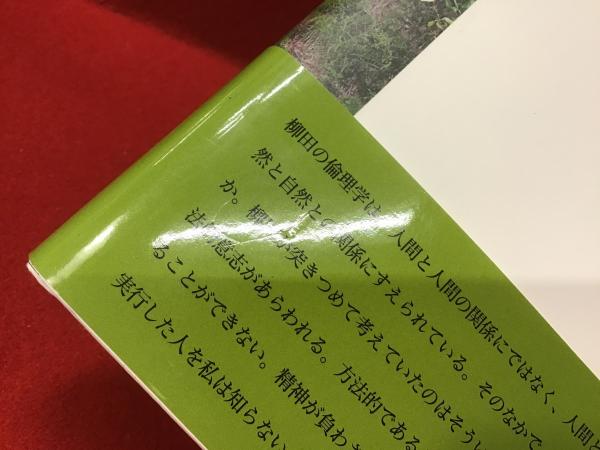 柳田の倫理学は、人間と人間の関係にではなく、人間と
然と自然との関係にすえられている。そのなかで
か。柳田が突きつめて考えていたのはそうい
法的意志があらわれる。方法的である
ることができない。精神が負わ
実行した人を私は知らない